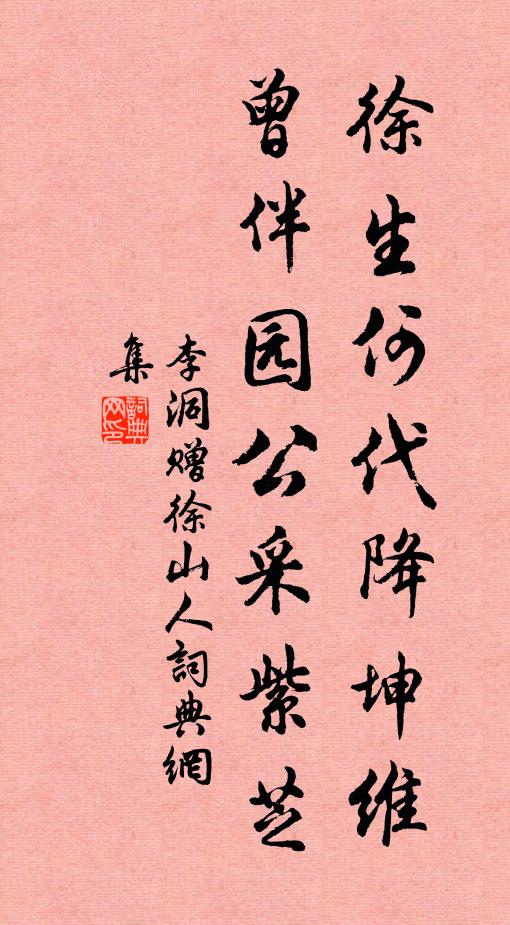 徐生何代降坤维
曾伴园公采紫芝
李洞赠徐山人詞典網
集
詞典
网印